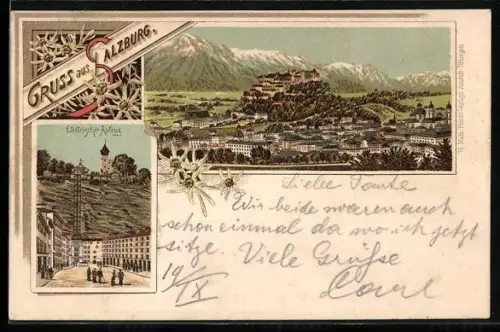 GRUSS aus SALZBURG.
Electrischer Aufzug
Liebe Tante
Wir beide waren auch
schon einmal da wo ich jetzt
sitze. Viele Grüße
19/IX Carl